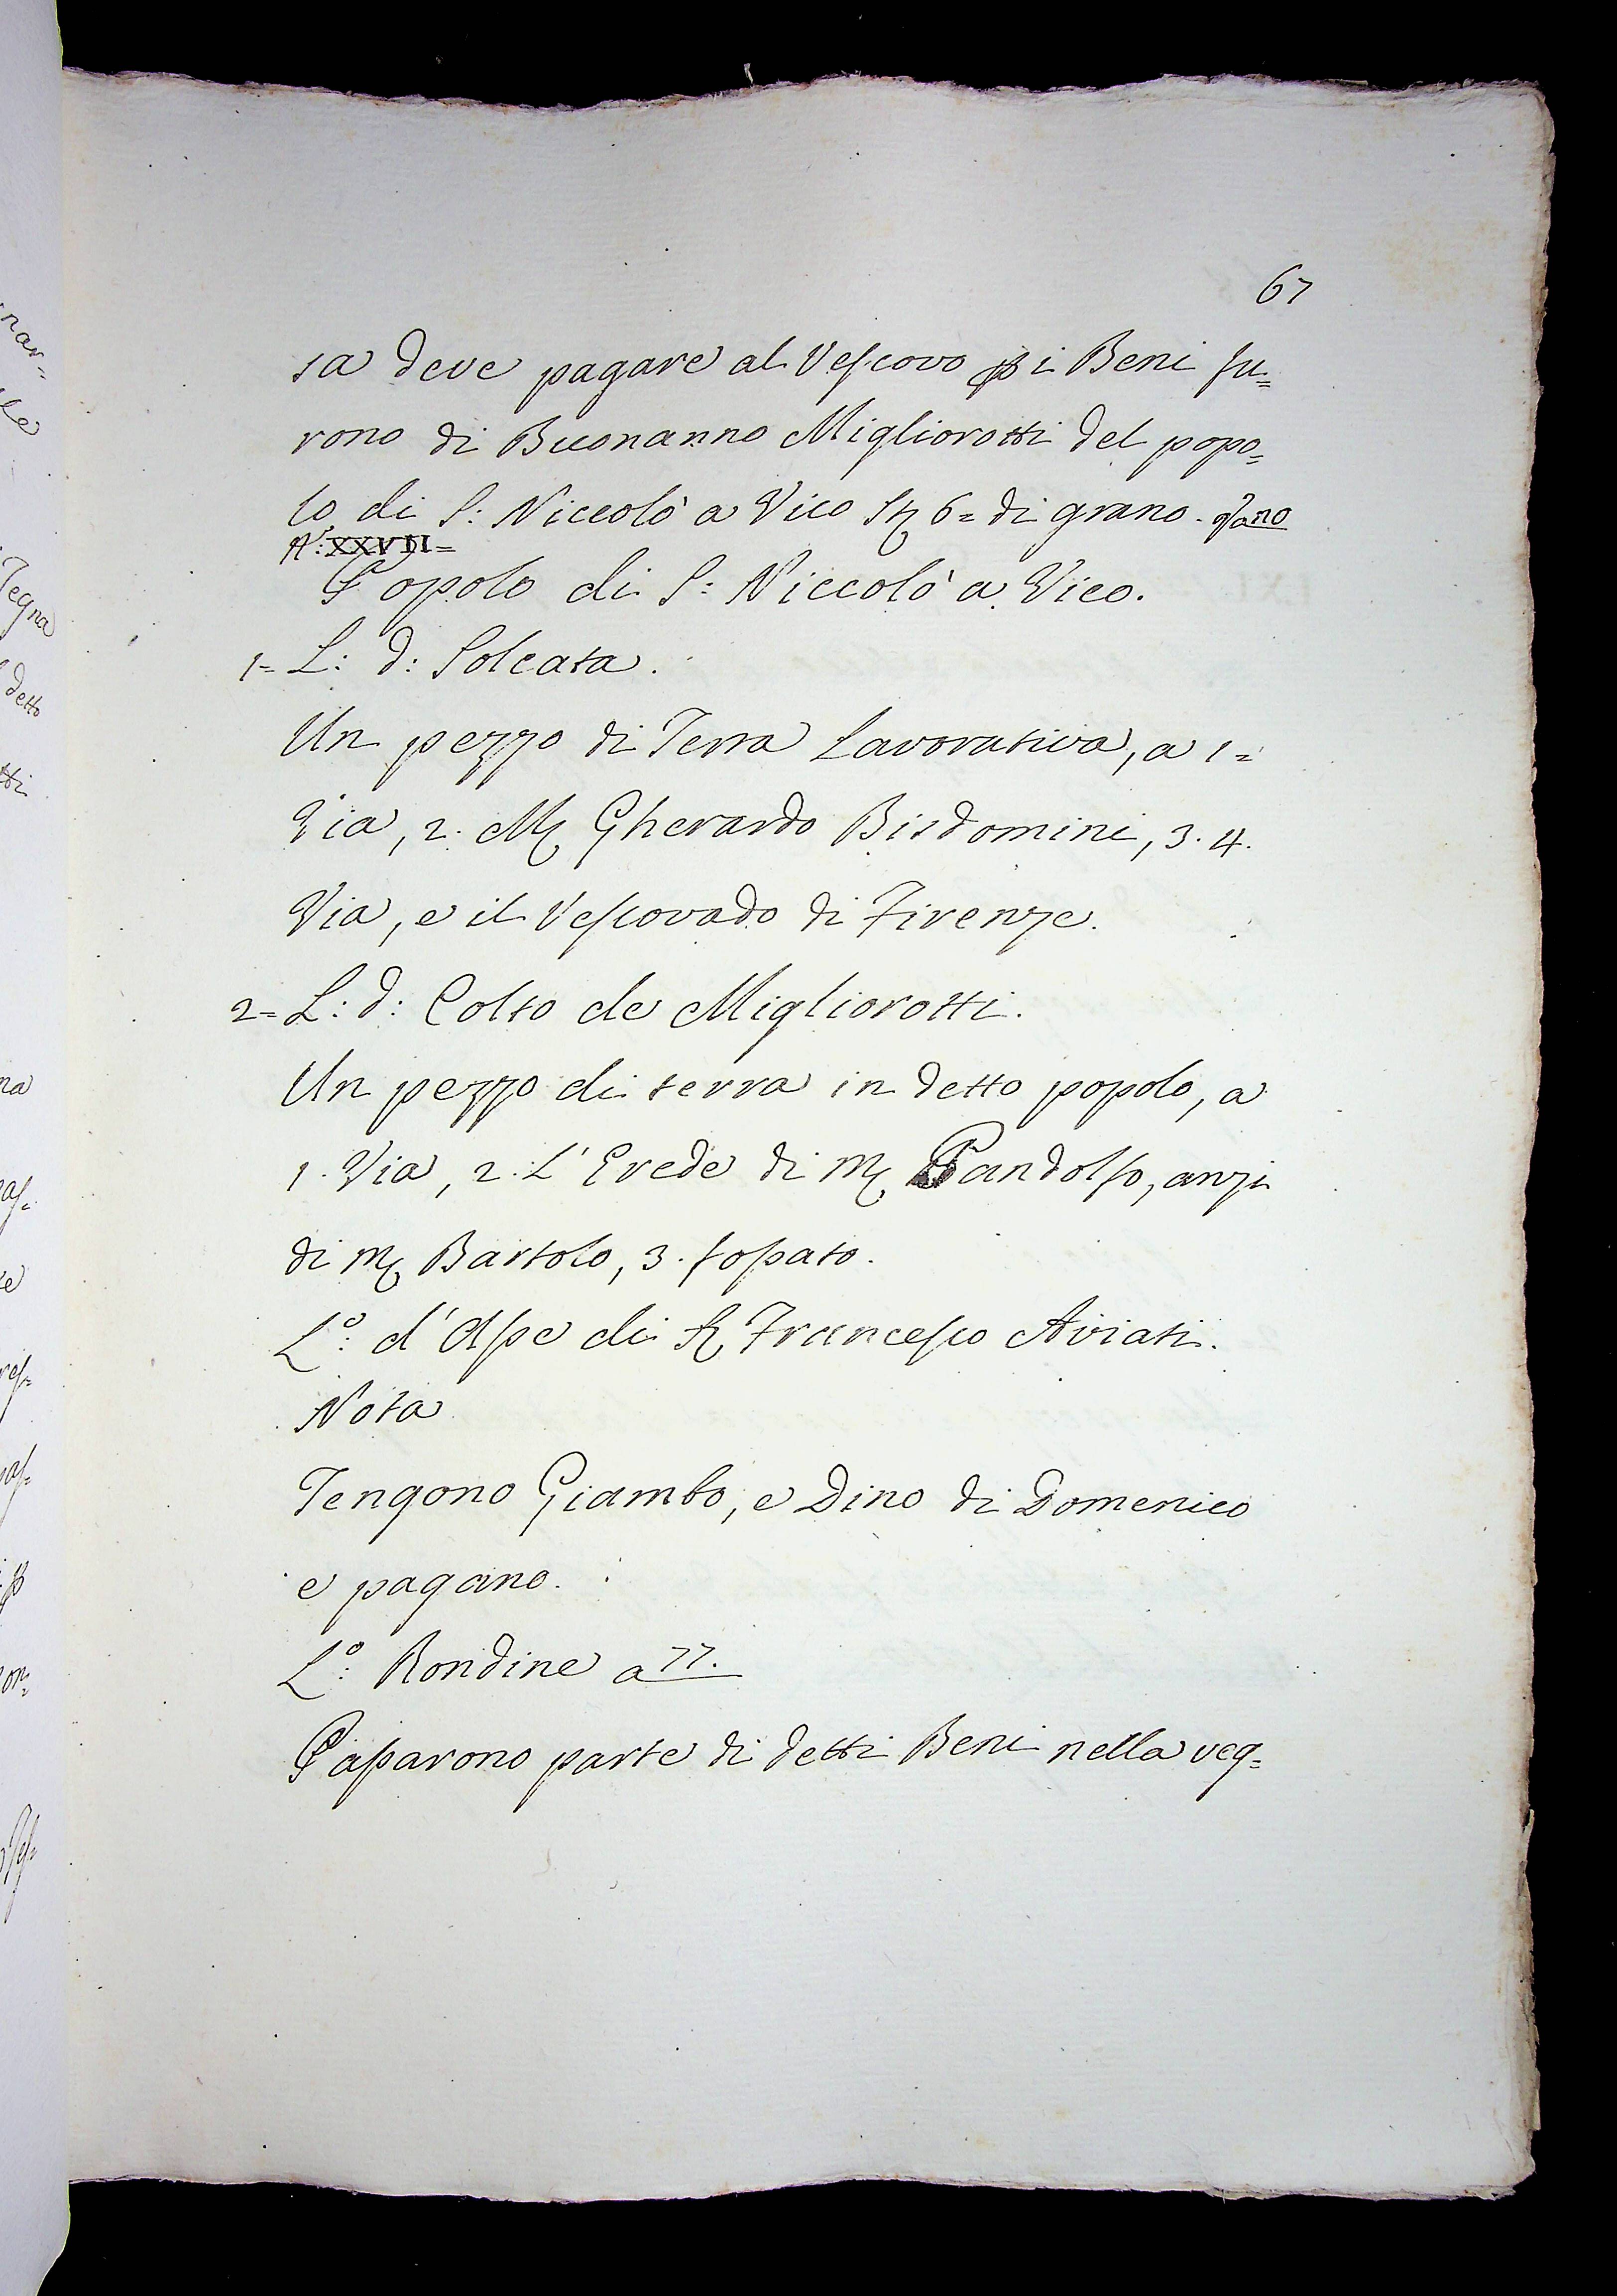 67
sa deve pagare al Vescovo ꝑ i Beni fu=
rono di Buonanno Migliorotti del popo=
lo di S: Niccolò a Vico St 6= di grano.
A: XXVII=
Popolo di S: Niccolò a Vico.
1= L: d: Solcata.
Un pezzo di Terra Lavorativa, a 1=
Via, 2. M Gherardo Bisdomini, 3. 4.
Via, e il Vescovado di Firenze.
2= L: d: Colto de Migliorotti.
Un pezzo di terra in detto popolo, a
1. Via, 2. L'Erede di M Pandolfo, anzi
di M Bartolo, 3. fossato.
L.º d'Asse di S Francesco Aviati.
Nota
Tengono Giambo, e Dino di Domenico
e pagano.
L.º Rondine a 77.
Passarono parte di detti Beni nella veg=
nar=
Tegna
detto
tti
na